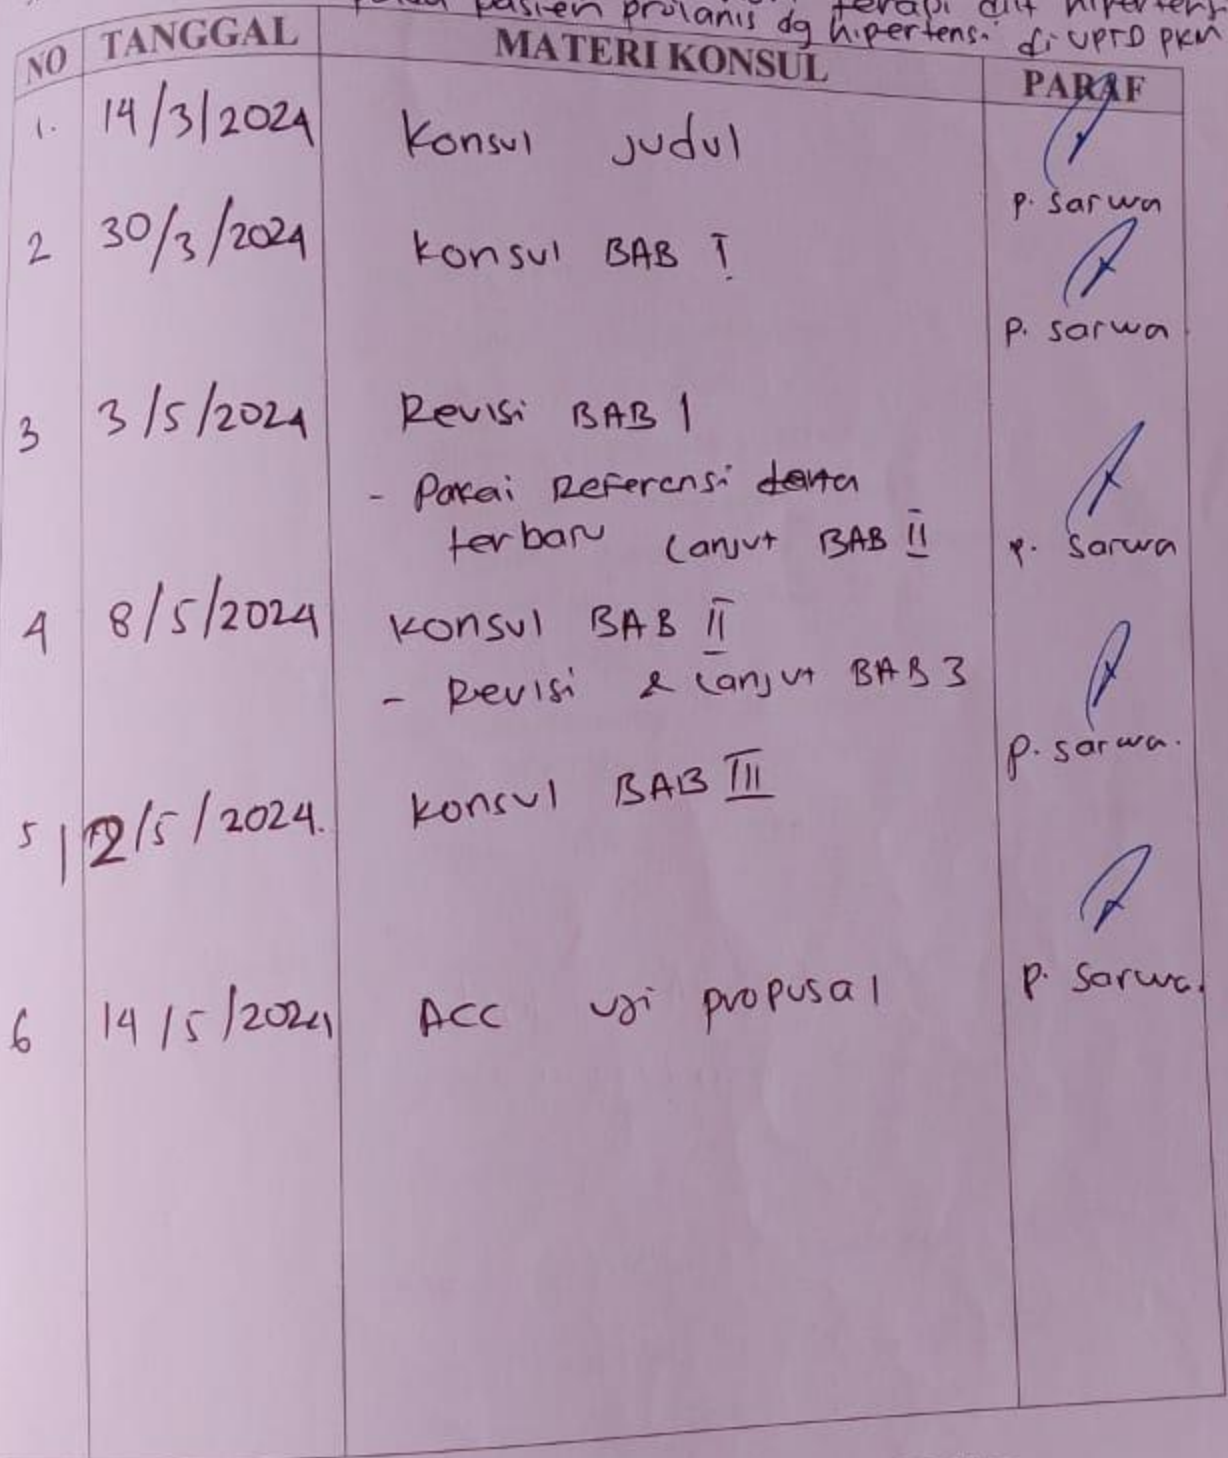 pasien prolanis dg hipertensi di UPTD PKM
NO TANGGAL MATERI KONSUL PARAF
1. 14/3/2024 Konsul Judul
P. Sarwa
2 30/3/2024 Konsul BAB I
P. Sarwa
3 3/5/2024 Revisi BAB 1
- Pakai Referensi
terbaru Lanjut BAB II P. Sarwa
4 8/5/2024 Konsul BAB II
- Revisi & Lanjut BAB 3
P. Sarwa.
5 12/5/2024. Konsul BAB III
P. Sarwa.
6 14/5/2024 ACC uji propusal